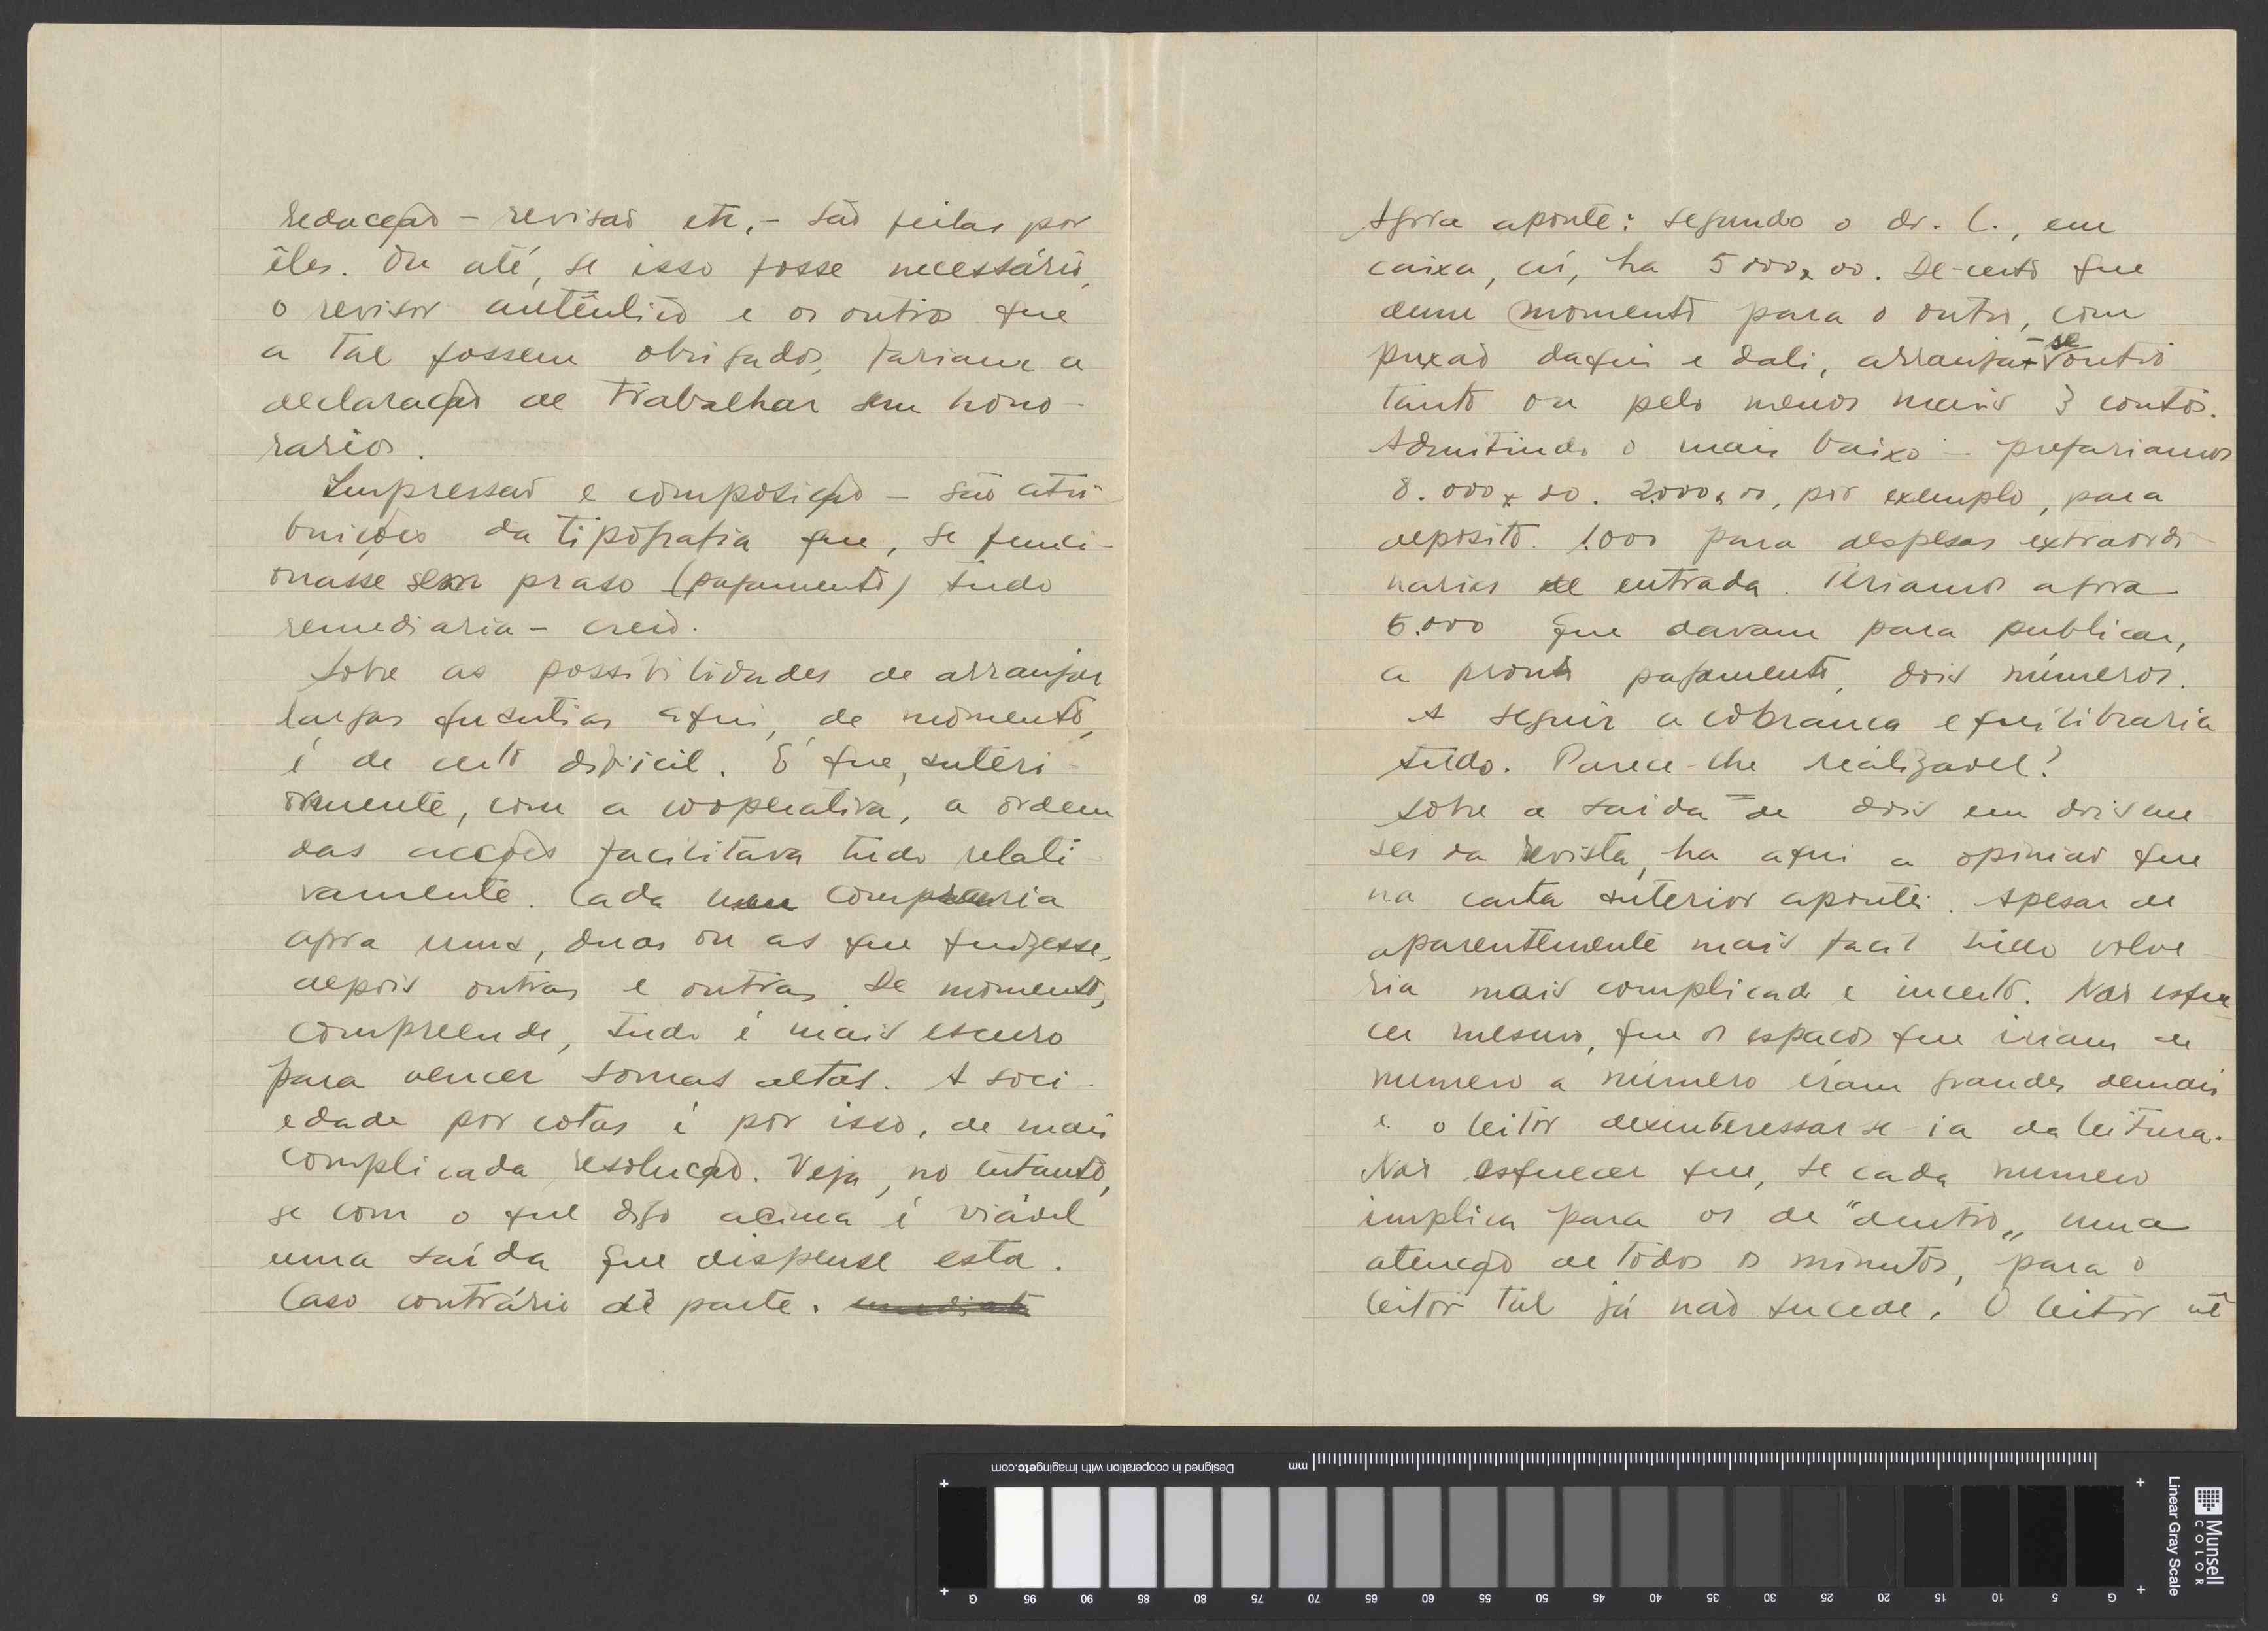 redacção – revisão etc, – são feitas por
êles. Ou até, se isso fosse necessário,
o revisor autêntico e os outros que
a tal fossem obrigados, fariam a
declaração de trabalhar sem hono-
rarios.
Impressão e composição – são atri-
buições da tipografia que, se funci-
onasse sem praso (pagamento) tudo
remediaria – creio.
Sobre as possibilidades de arranjar
largas quantias aqui, de momento,
é de certo dificil. É que, anteri-
ormente, com a cooperativa, a ordem
das acções facilitava tudo relati-
vamente. Cada um compraria
agora uma, duas ou as que quizesse,
depois outras e outras. De momento,
compreende, tudo é mais escuro
para vencer somas altas. A soci-
edade por cotas é por isso, de mais
complicada resolução. Veja, no entanto,
se com o que digo acima é viável
uma saída que dispense esta.
Caso contrário dê parte.
Agora aponte: segundo o dr. C., em
caixa, aí, ha 5000$00. De-certo que
dum momento para o outro, com
puxão daqui e dali, arranja-se outro
tanto ou pelo menos mais 3 contos.
Admitindo o mais baixo – prefariamos
8.000$00. 2.000$00, por exemplo, para
deposito. 1.000 para despesas extraordi-
narias de entrada. Teriamos agora
5.000 que davam para publicar,
a pronto pagamento, dois números.
A seguir a cobrança equilibraria
tudo. Parece-lhe realizavel?
Sobre a saida de dois em dois me-
ses da revista, ha aqui a opinião que
na carta anterior apontei. Apesar de
aparentemente mais facil tudo volve-
ria mais complicado e incerto. Não esque-
cer mesmo, que os espaços que iriam de
numero a número eram grandes demais
e o leitor desinteressar-se-ia da leitura.
Não esquecer que, se cada numero
implica para os de "dentro„ uma
atenção de todos os minutos, para o
leitor tal já não sucede. O leitor vê
Designed in cooperation with imagingetc.com
mm
G 95 90 85 80 75 70 65 60 55 50 45 40 35 30 25 20 15 10 5 G
Munsell
COLOR
Linear Gray Scale